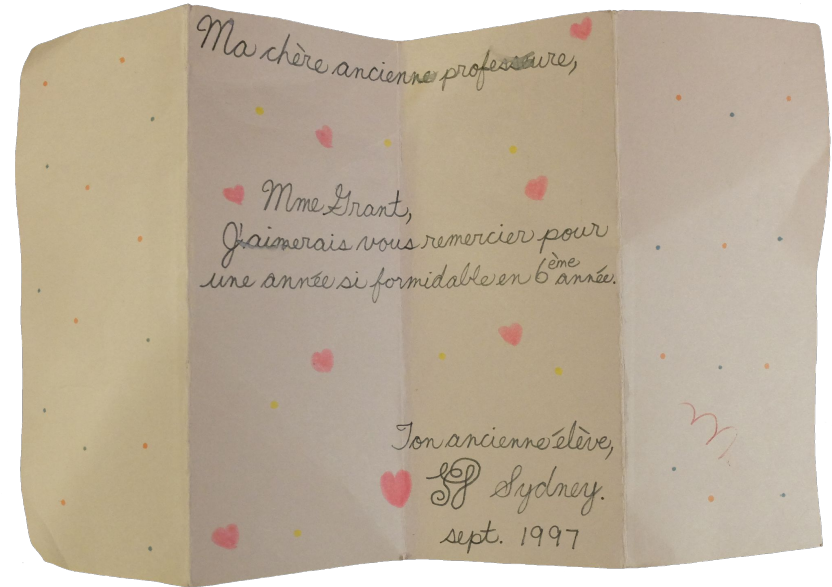 Ma chère ancienne professeure,
Mme Grant,
J'aimerais vous remercier pour
une année si formidable en 6ème année.
Ton ancienne élève,
Sydney.
sept. 1997